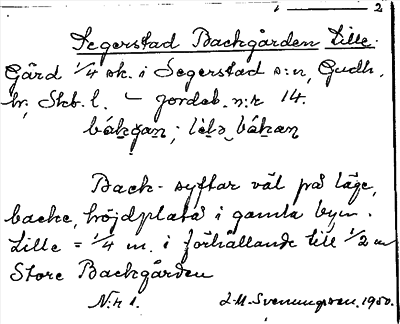 1 — 2
Segerstad Backgården Lille.
Gård 1/4 sk. i Segerstad s:n, Gudh.
hr, Skb. l. — jordeb. n:r 14.
bákgan; lilə bákan
Back- syftar väl på läge,
backe, höjdplatå i gamla byn.
Lille = 1/4 m. i förhållande till 1/2 m
Store Backgården
N:r 1. J.M. Svenungsson. 1950.